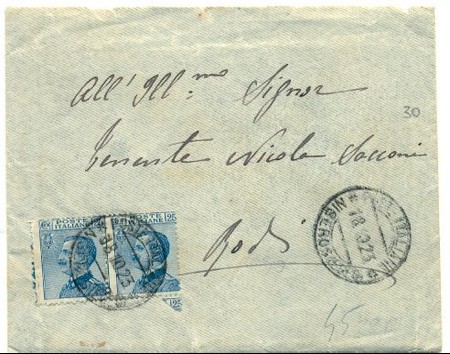 All' Ill.mo Signor
30
Tenente Nicola Sacconi
Rodi
POSTE ITALIANE 25
POSTE ITALIANE 25
POSTE ITALIANE
NISEROS
18.10.23
25
45